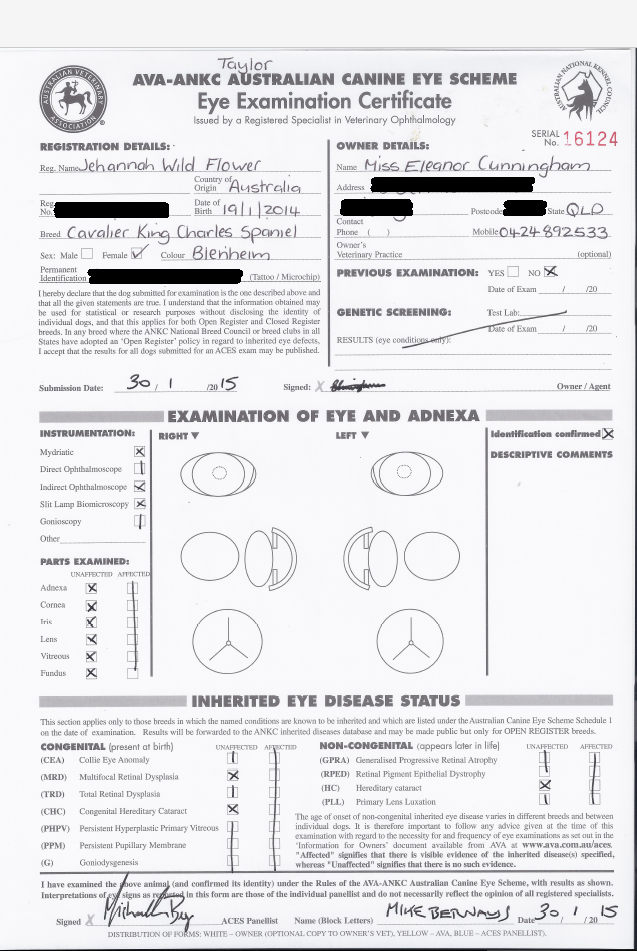 Taylor
AVA-ANKC AUSTRALIAN CANINE EYE SCHEME
Eye Examination Certificate
Issued by a Registered Specialist in Veterinary Ophthalmology
AUSTRALIAN VETERINARY ASSOCIATION
AUSTRALIAN NATIONAL KENNEL COUNCIL
SERIAL No. 16124
REGISTRATION DETAILS:
Reg. Name Jehannah Wild Flower
Country of Origin Australia
Reg. No.
Date of Birth 19/1/2014
Breed Cavalier King Charles Spaniel
Sex: Male Female Colour Blenheim
Permanent Identification (Tattoo / Microchip)
I hereby declare that the dog submitted for examination is the one described above and
that all the given statements are true. I understand that the information obtained may
be used for statistical or research purposes without disclosing the identity of
individual dogs, and that this applies for both Open Register and Closed Register
breeds. In any breed where the ANKC National Breed Council or breed clubs in all
States have adopted an 'Open Register' policy in regard to inherited eye defects,
I accept that the results for all dogs submitted for an ACES exam may be published.
OWNER DETAILS:
Name Miss Eleanor Cunningham
Address
Postcode State QLD
Contact Phone ( ) Mobile 0424 892533
Owner's Veterinary Practice (optional)
PREVIOUS EXAMINATION: YES NO
Date of Exam / /20
GENETIC SCREENING: Test Lab:
Date of Exam / /20
RESULTS (eye conditions only):
Submission Date: 30 / 1 /20 15 Signed: X Owner / Agent
EXAMINATION OF EYE AND ADNEXA
INSTRUMENTATION:
Mydriatic
Direct Ophthalmoscope
Indirect Ophthalmoscope
Slit Lamp Biomicroscopy
Gonioscopy
Other
PARTS EXAMINED:
UNAFFECTED AFFECTED
Adnexa
Cornea
Iris
Lens
Vitreous
Fundus
RIGHT ▼ LEFT ▼
Identification confirmed
DESCRIPTIVE COMMENTS
INHERITED EYE DISEASE STATUS
This section applies only to those breeds in which the named conditions are known to be inherited and which are listed under the Australian Canine Eye Scheme Schedule 1
on the date of examination. Results will be forwarded to the ANKC inherited diseases database and may be made public but only for OPEN REGISTER breeds.
CONGENITAL (present at birth) UNAFFECTED AFFECTED
(CEA) Collie Eye Anomaly
(MRD) Multifocal Retinal Dysplasia
(TRD) Total Retinal Dysplasia
(CHC) Congenital Hereditary Cataract
(PHPV) Persistent Hyperplastic Primary Vitreous
(PPM) Persistent Pupillary Membrane
(G) Goniodysgenesis
NON-CONGENITAL (appears later in life) UNAFFECTED AFFECTED
(GPRA) Generalised Progressive Retinal Atrophy
(RPED) Retinal Pigment Epithelial Dystrophy
(HC) Hereditary cataract
(PLL) Primary Lens Luxation
The age of onset of non-congenital inherited eye disease varies in different breeds and between
individual dogs. It is therefore important to follow any advice given at the time of this
examination with regard to the necessity for and frequency of eye examinations as set out in the
'Information for Owners' document available from AVA at www.ava.com.au/aces.
"Affected" signifies that there is visible evidence of the inherited disease(s) specified,
whereas "Unaffected" signifies that there is no such evidence.
I have examined the above animal (and confirmed its identity) under the Rules of the AVA-ANKC Australian Canine Eye Scheme, with results as shown.
Interpretations of eye signs as reported in this form are those of the individual panellist and do not necessarily reflect the opinion of all registered specialists.
Signed X ACES Panellist Name (Block Letters) MIKE BERNAYS Date 30 / 1 / 20 15
DISTRIBUTION OF FORMS: WHITE – OWNER (OPTIONAL COPY TO OWNER'S VET), YELLOW – AVA, BLUE – ACES PANELLIST).